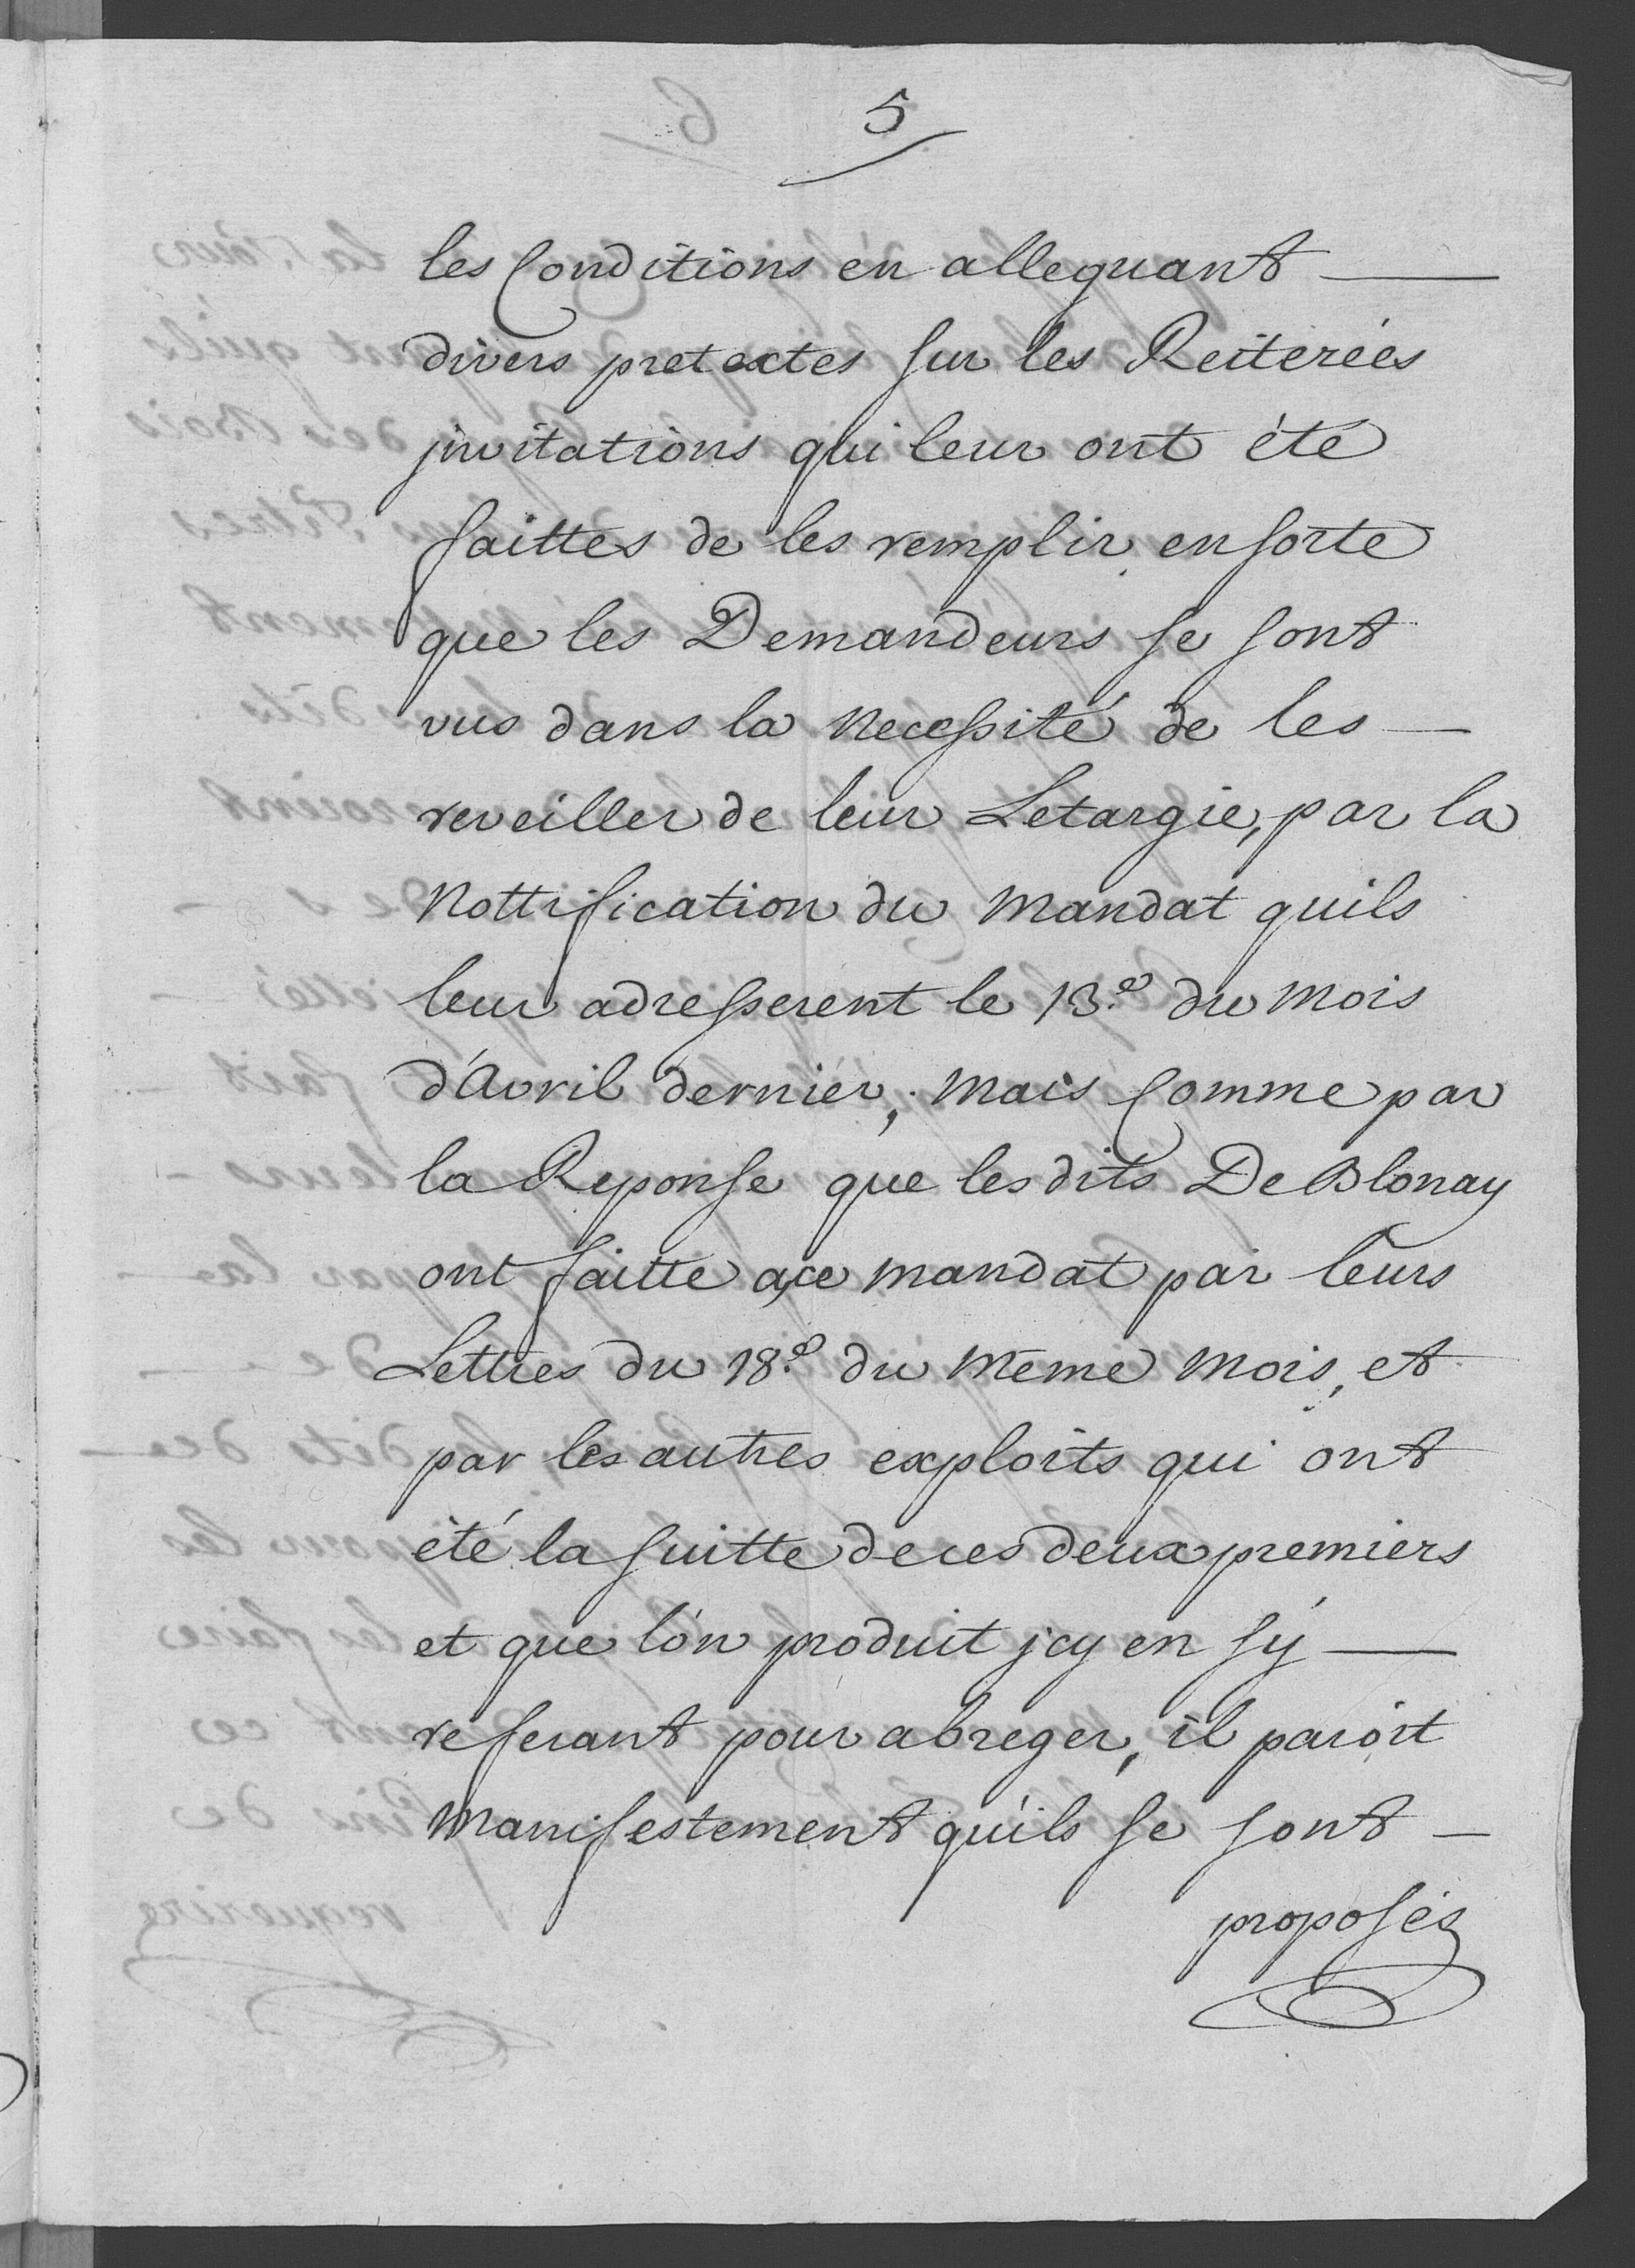 5
les Conditions en alleguant
divers pretextes sur les Reiterées
jnvitations qui leur ont été
faittes de les remplir, ensorte
que les Demandeurs se sont
vus dans la necessité de les
reveiller de leur Letargie, par la
Nottification du Mandat quils
leur adresserent le 13.e du Mois
d'Avril dernier; Mais Comme par
la Reponse que les dits De Blonay
ont faitte a ce mandat par leurs
Lettres du 18.e du meme Mois, et
par les autres exploits qui ont
été la suitte de ces deux premiers
et que l'on produit jcy en s'y
referant pour abreger, il paroit
Manifestement qu'ils se sont
proposéz